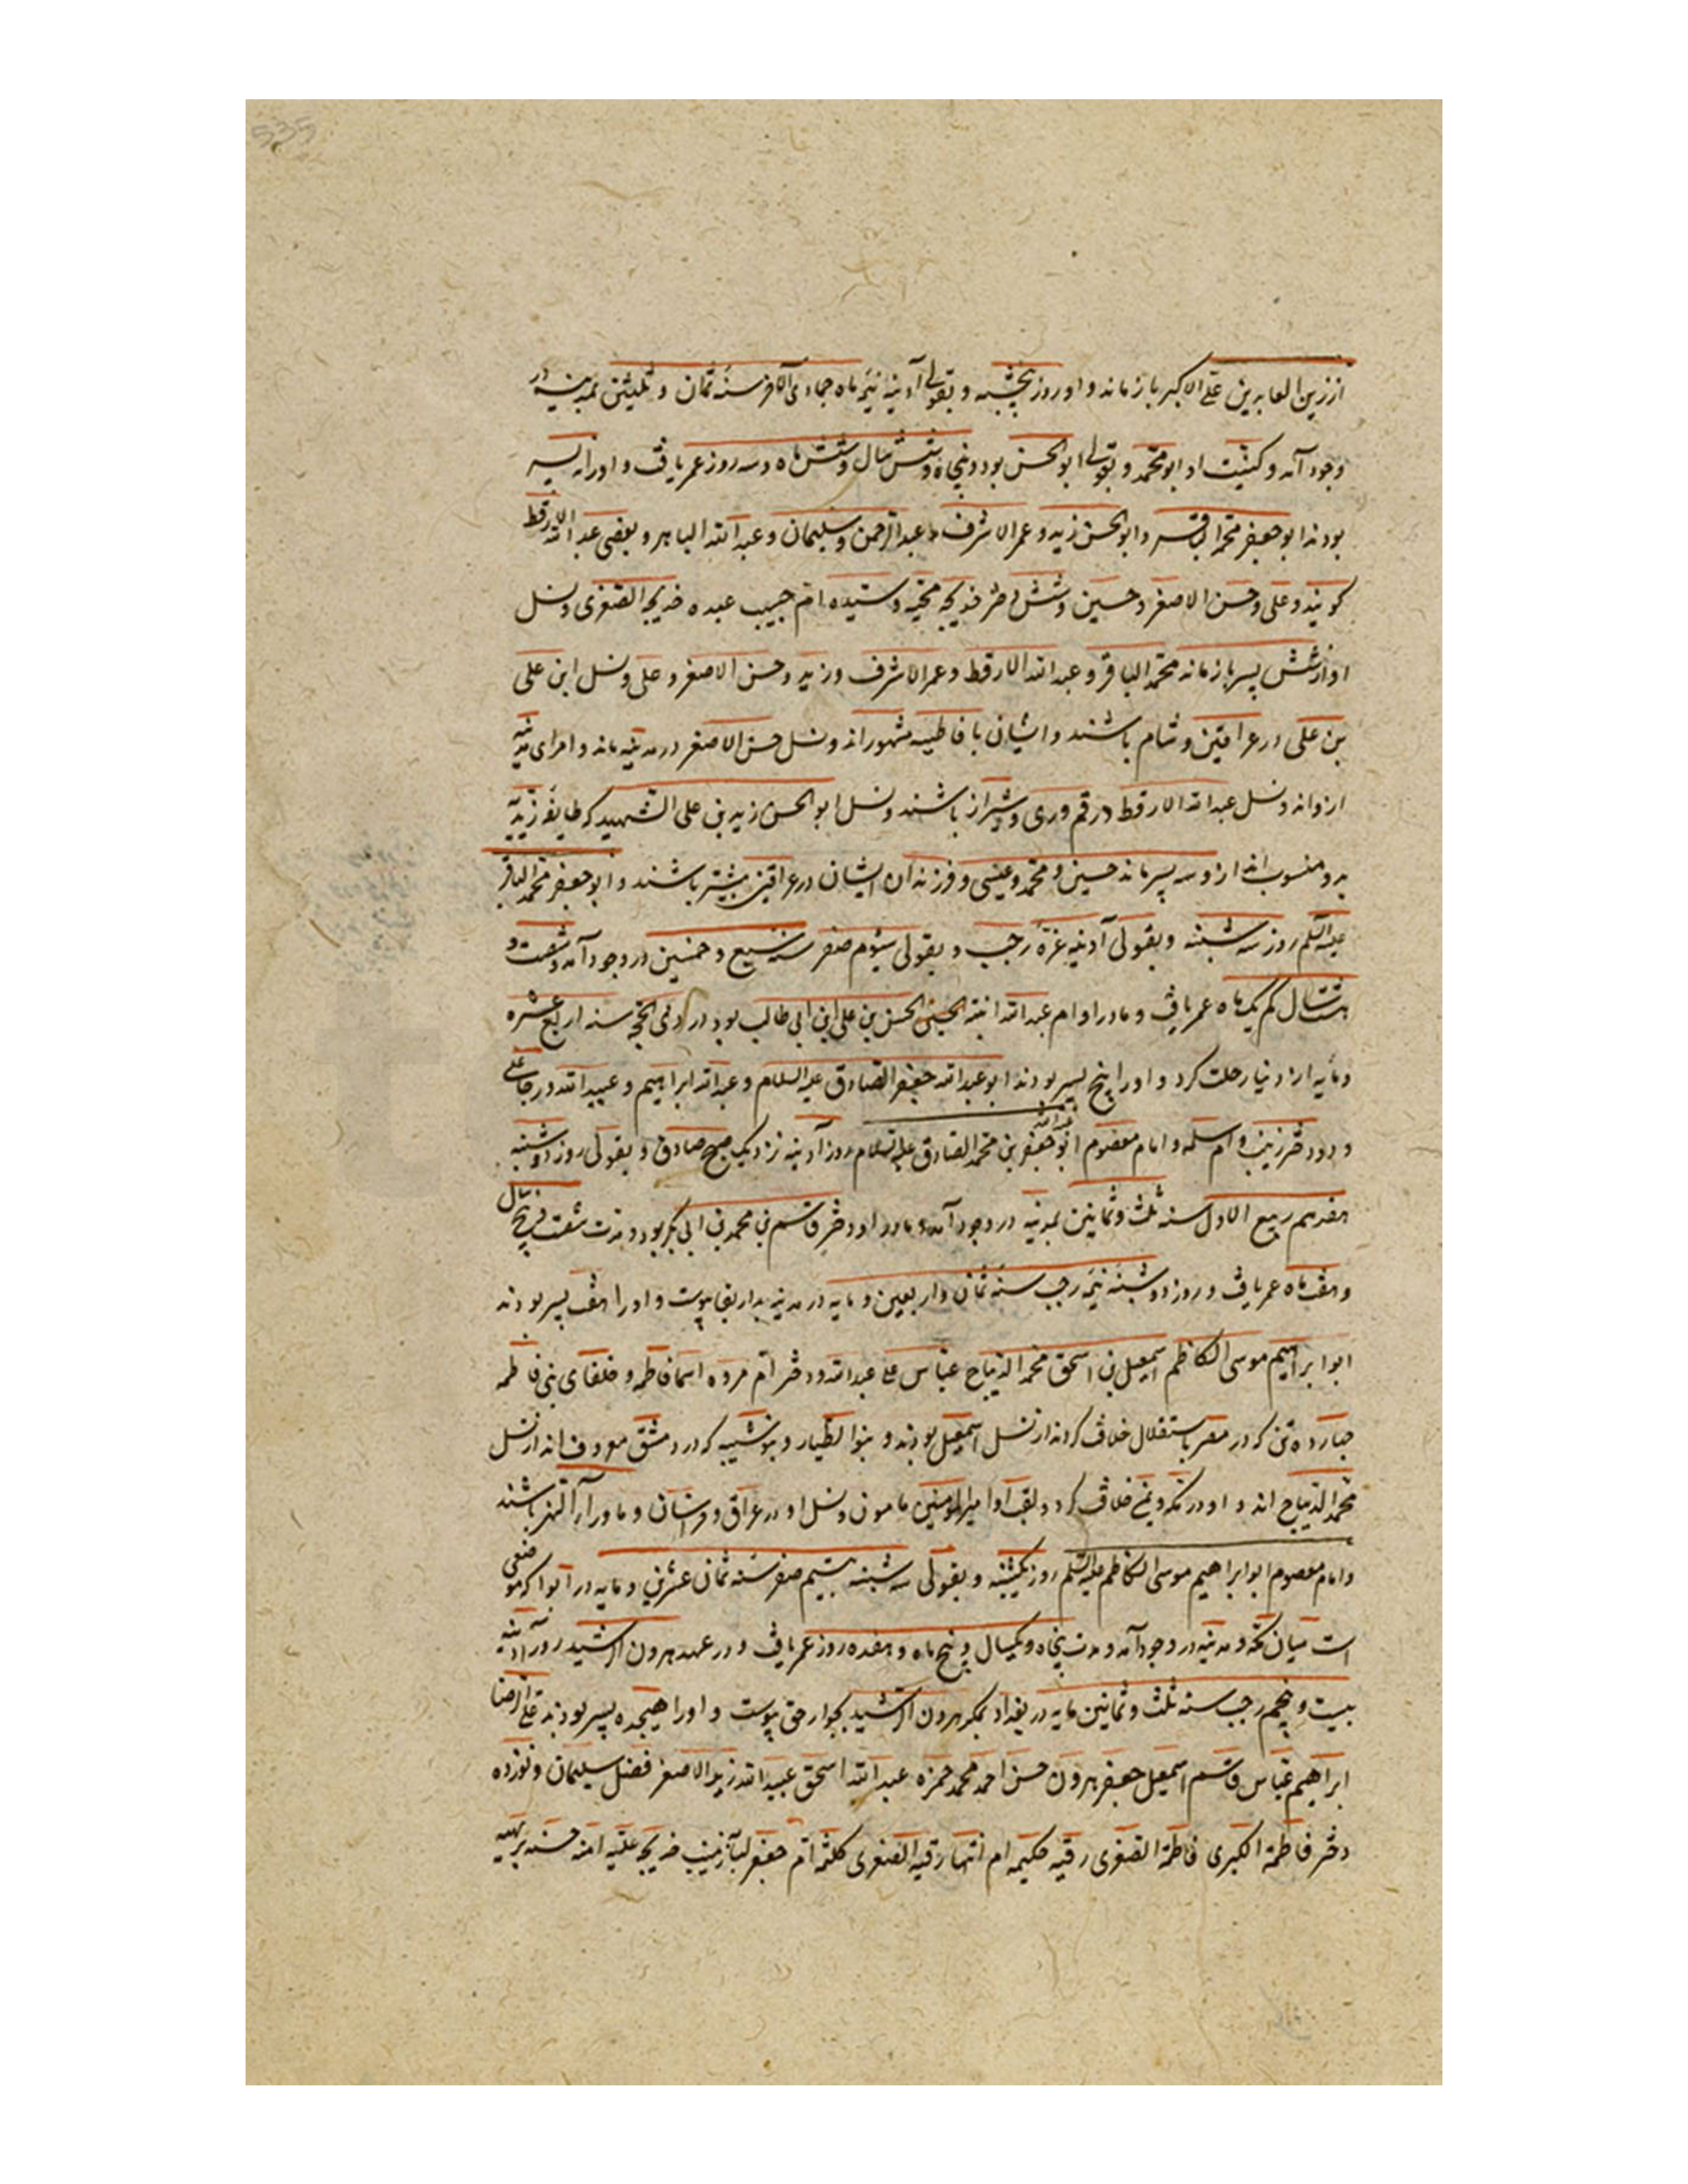 535
از زین العابدین علی الاکبر باز ماند و او روز پنجشنبه و بقولی آدینه نیمه ماه جمادی الآخر سنه ثمان و ثلثین بمدینه در
وجود آمد و کنیت او ابو محمد و بقولی ابو الحسن بود و پنجاه و شش سال و شش ماه و سه روز عمر یافت و او را نه پسر
بودند ابو جعفر محمد الباقر و ابو الحسن زید و عمر الاشرف و عبد الرحمن و سلیمان و عبد الله الباهر و بعضی عبد الله الارقط
گویند و علی و حسن الاصغر و حسین و شش دختر خدیجه و سیده ام حبیب عبده خدیجه الصغری و نسل
او از شش پسر باز ماند محمد الباقر و عبد الله الارقط و عمر الاشرف و زید و حسن الاصغر و علی و نسل ابن علی
بن علی در عراقین و شام باشند و ایشان با فاطیسه مشهوراند و نسل حسن الاصغر در مدینه ماند و امرای مدینه
ازواند و نسل عبد الله الارقط در قم و ری و شیراز باشند و نسل ابو الحسن زید بن علی الشهید که طایفه زیدیه
بدو منسوب اند ازو سه پسر ماند حسین و محمد و عیسی و فرزندان ایشان در عراقین بیشتر باشند و ابو جعفر محمد الباقر
علیه السلم روز سه شنبه و بقولی آدینه غره رجب و بقولی سیوم صفر سنه سبع و خمسین در وجود آمد و شصت و
هشت سال کم یکماه عمر یافت و مادر او ام عبد الله ابنة الحسن بن علی ابن ابی طالب بود در ذی الحجه سنه اربع عشره
و مأیه از دنیا رحلت کرد و او را پنج پسر بودند ابو عبد الله جعفر الصادق علیه السلام و عبد الله ابراهیم و عبید الله در جا علی
و دو دختر زینب و ام سلمه و امام معصوم ابو عبد الله جعفر بن محمد الصادق علیه السلام روز آدینه نزدیک صبح صادق و بقولی روز دوشنبه
هفدهم ربیع الاول سنه ثلث و ثمانین بمدینه در وجود آمد و مادر او دختر قاسم بن محمد بن ابی بکر بود و مدت شصت و پنج سال
و هفت ماه عمر یافت و روز دوشنبه نیمه رجب سنه ثمان و اربعین و مایه در مدینه بدار بقا پیوست و او را هفت پسر بودند
ابو ابراهیم موسی الکاظم اسمعیل بن اسحق محمد الدیباج عباس علی عبد الله و دختر ام فروه اسما فاطمه و خلفای بنی فاطمه
چهارده تن که در مصر باستقلال خلافت کردند از نسل اسمعیل بودند و بنوا لطیار و بنو شیبه که در دمشق معروف اند از نسل
محمد الدیباج اند و او در مکه و یمن خلافت کرد و لقب او امیر المومنین مامون و نسل او در عراق و خراسان و ماورآ النهر باشند
و امام معصوم ابو ابراهیم موسی الکاظم علیه السلم روز یکشنبه و بقولی سه شنبه بیستم صفر سنه ثمان عشرین و مایه در ابوا که موضعی
است میان مکه و مدینه در وجود آمد و مدت پنجاه و یکسال و پنج ماه و هفده روز عمر یافت و در عهد هرون الرشید روز آدینه
بیست و پنجم رجب سنه ثلث و ثمانین مایه در بغداد بمکر هرون الرشید بجوار حق پیوست و او را هیجده پسر بودند علی الرضا
ابراهیم عباس قاسم اسمعیل جعفر هرون حسن احمد محمد حمزه عبد الله اسحق عبید الله زید الاصغر فضل سلیمان و نوزده
دختر فاطمة الکبری فاطمة الصغری رقیه حکیمه ام ابیها رقیه الصغری کلثم ام جعفر لبابه زینب خدیجه علیه امنه حسنه بریهه